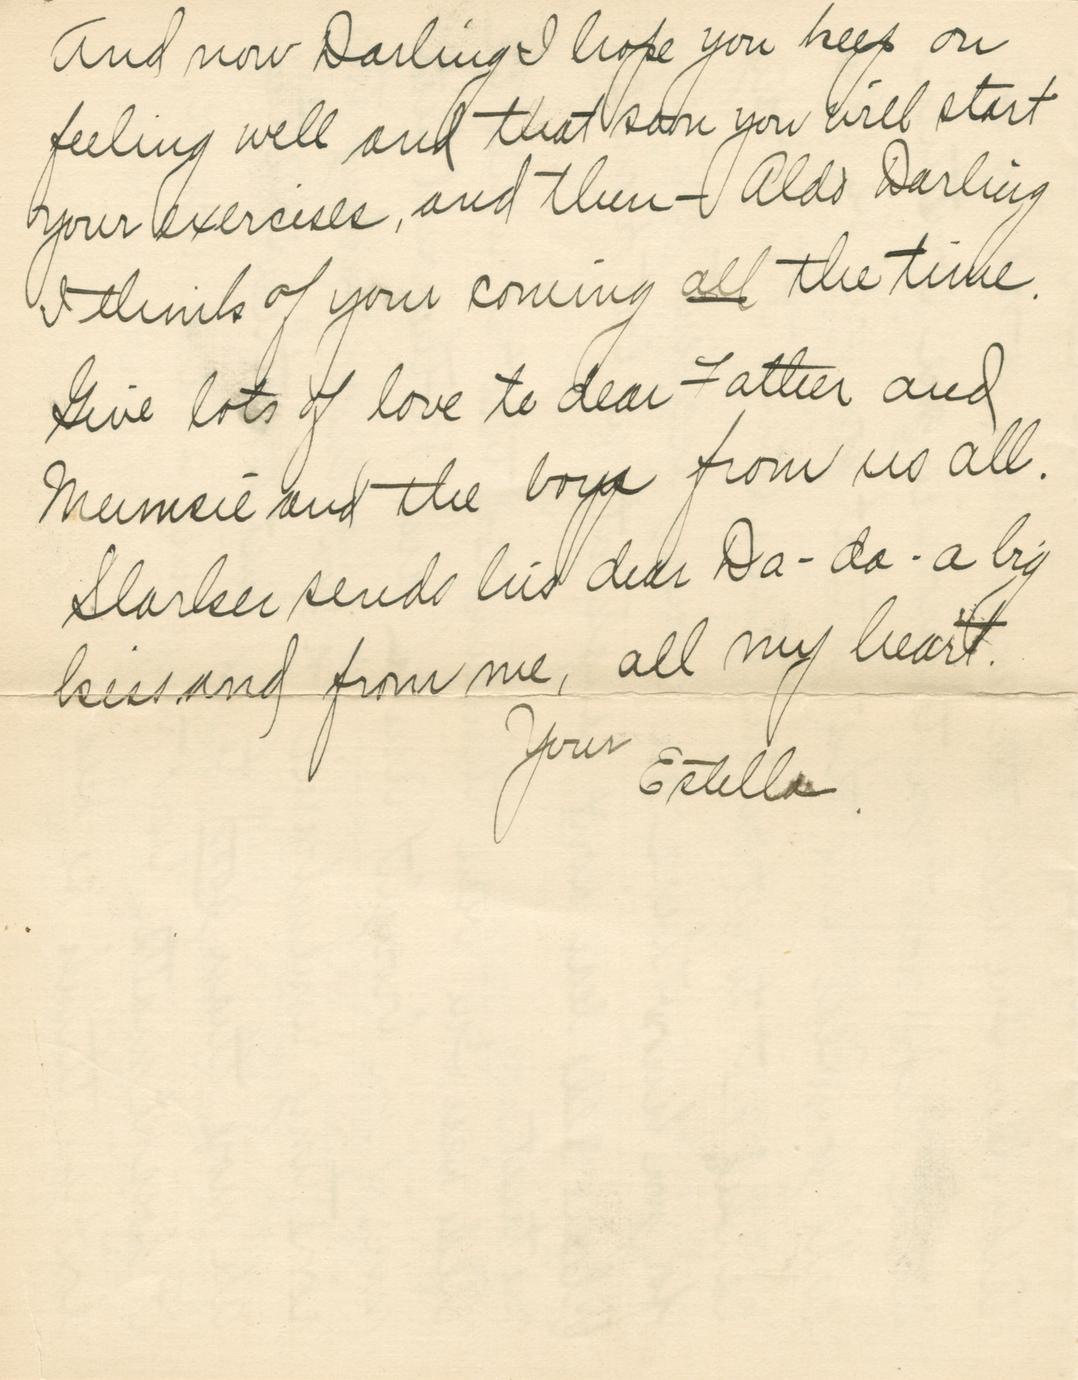 And now Darling I hope you keep on
feeling well and that soon you will start
your exercises, and then - Aldo Darling
I think of your coming all the time.
Give lots of love to dear Father and
Mumsie and the boys from us all.
Starker sends his dear Da-da - a big
kiss and from me, all my heart.
Your
Estella.